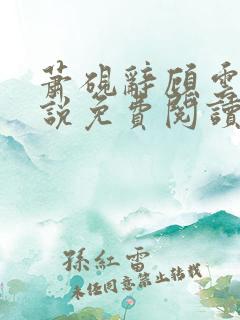 蕭硯辭顧雲
說免費閱讀
孫紅雷
未經同意禁止轉載